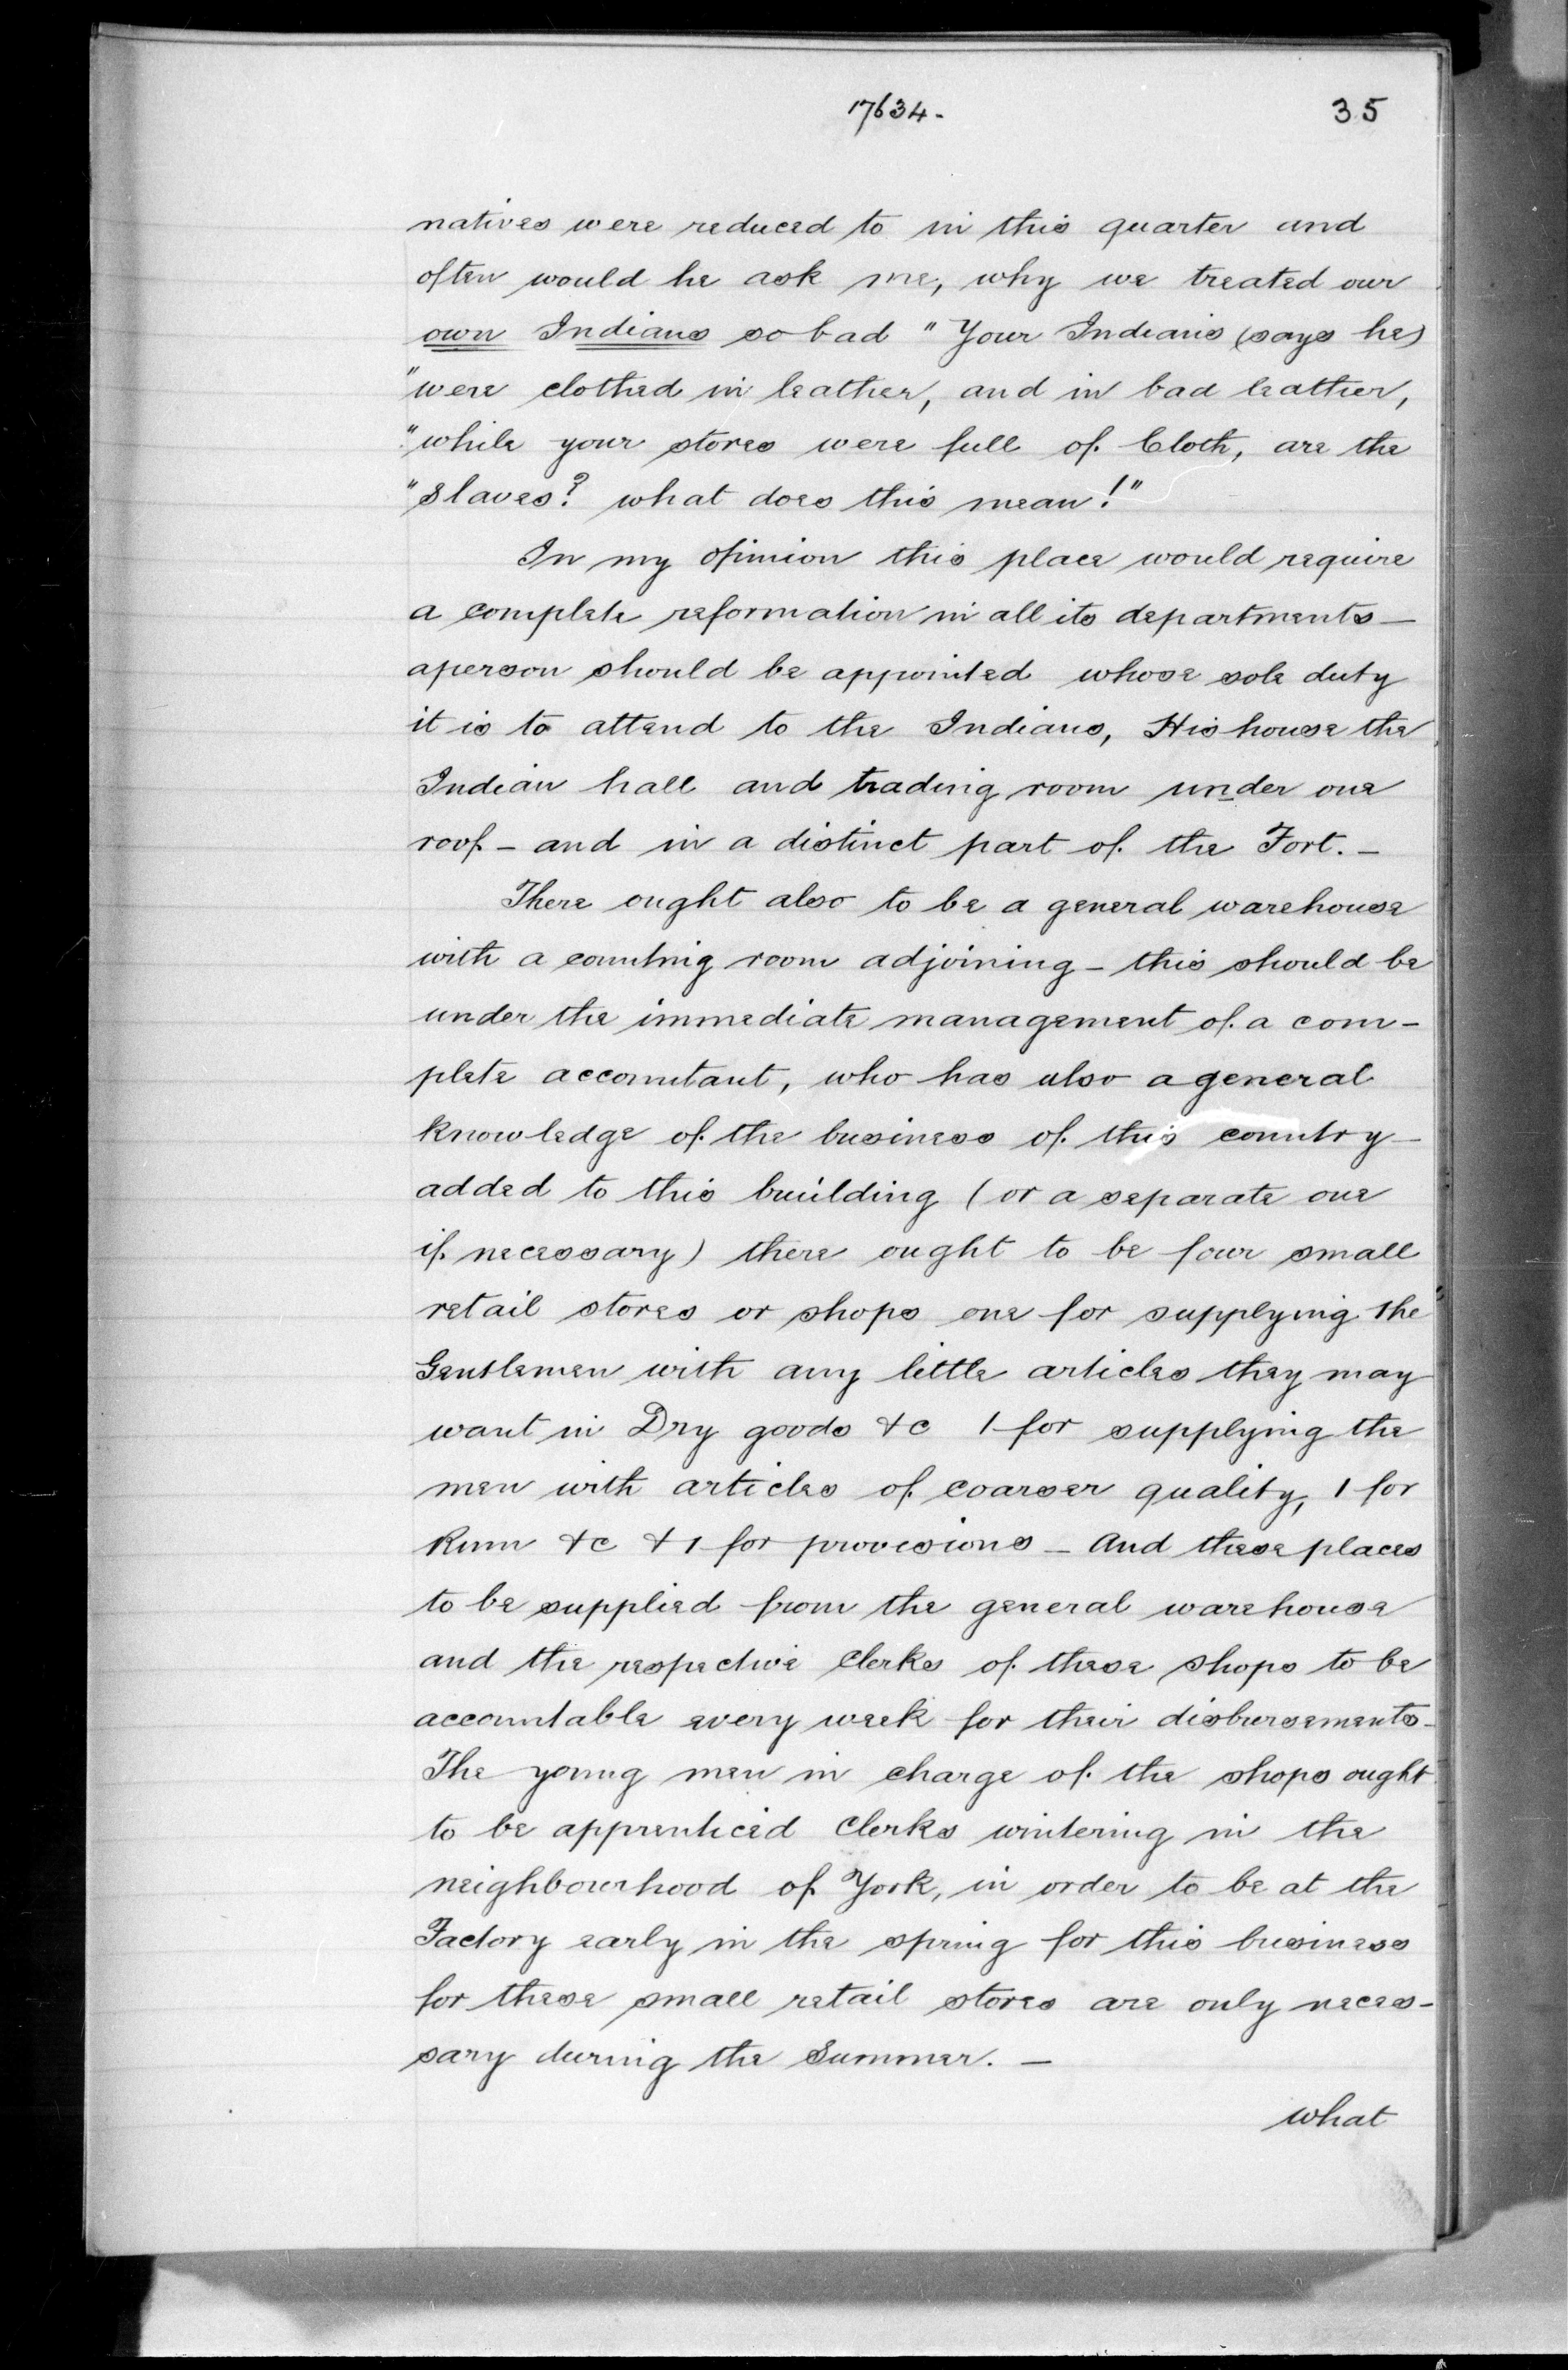 17634.
35
natives were reduced to in this quarter and
often would he ask me, why we treated our
own Indians so bad "Your Indians (says he)
"were clothed in leather, and in bad leather,
"while your stores were full of Cloth, are the
"slaves? what does this mean!"
In my opinion this place would require
a complete reformation in all its departments—
aperson should be appointed whose sole duty
it is to attend to the Indians, His house the
Indian hall and trading room under one
roof – and in a distinct part of the Fort. –
There ought also to be a general warehouse
with a counting room adjoining – this should be
under the immediate management of a com-
plete accountant, who has also a general
knowledge of the business of this country –
added to this building (or a separate one
if necessary) there ought to be four small
retail stores or shops one for supplying the
Gentlemen with any little articles they may
want in Dry goods &c 1 for supplying the
men with articles of coarser quality, 1 for
Rum &c & 1 for provisions – And these places
to be supplied from the general warehouse
and the respective Clerks of these shops to be
accountable every week for their disbursements –
The young men in charge of the shops ought
to be apprenticed Clerks wintering in the
neighbourhood of York, in order to be at the
Factory early in the spring for this business
for these small retail stores are only neces-
sary during the Summer. –
what